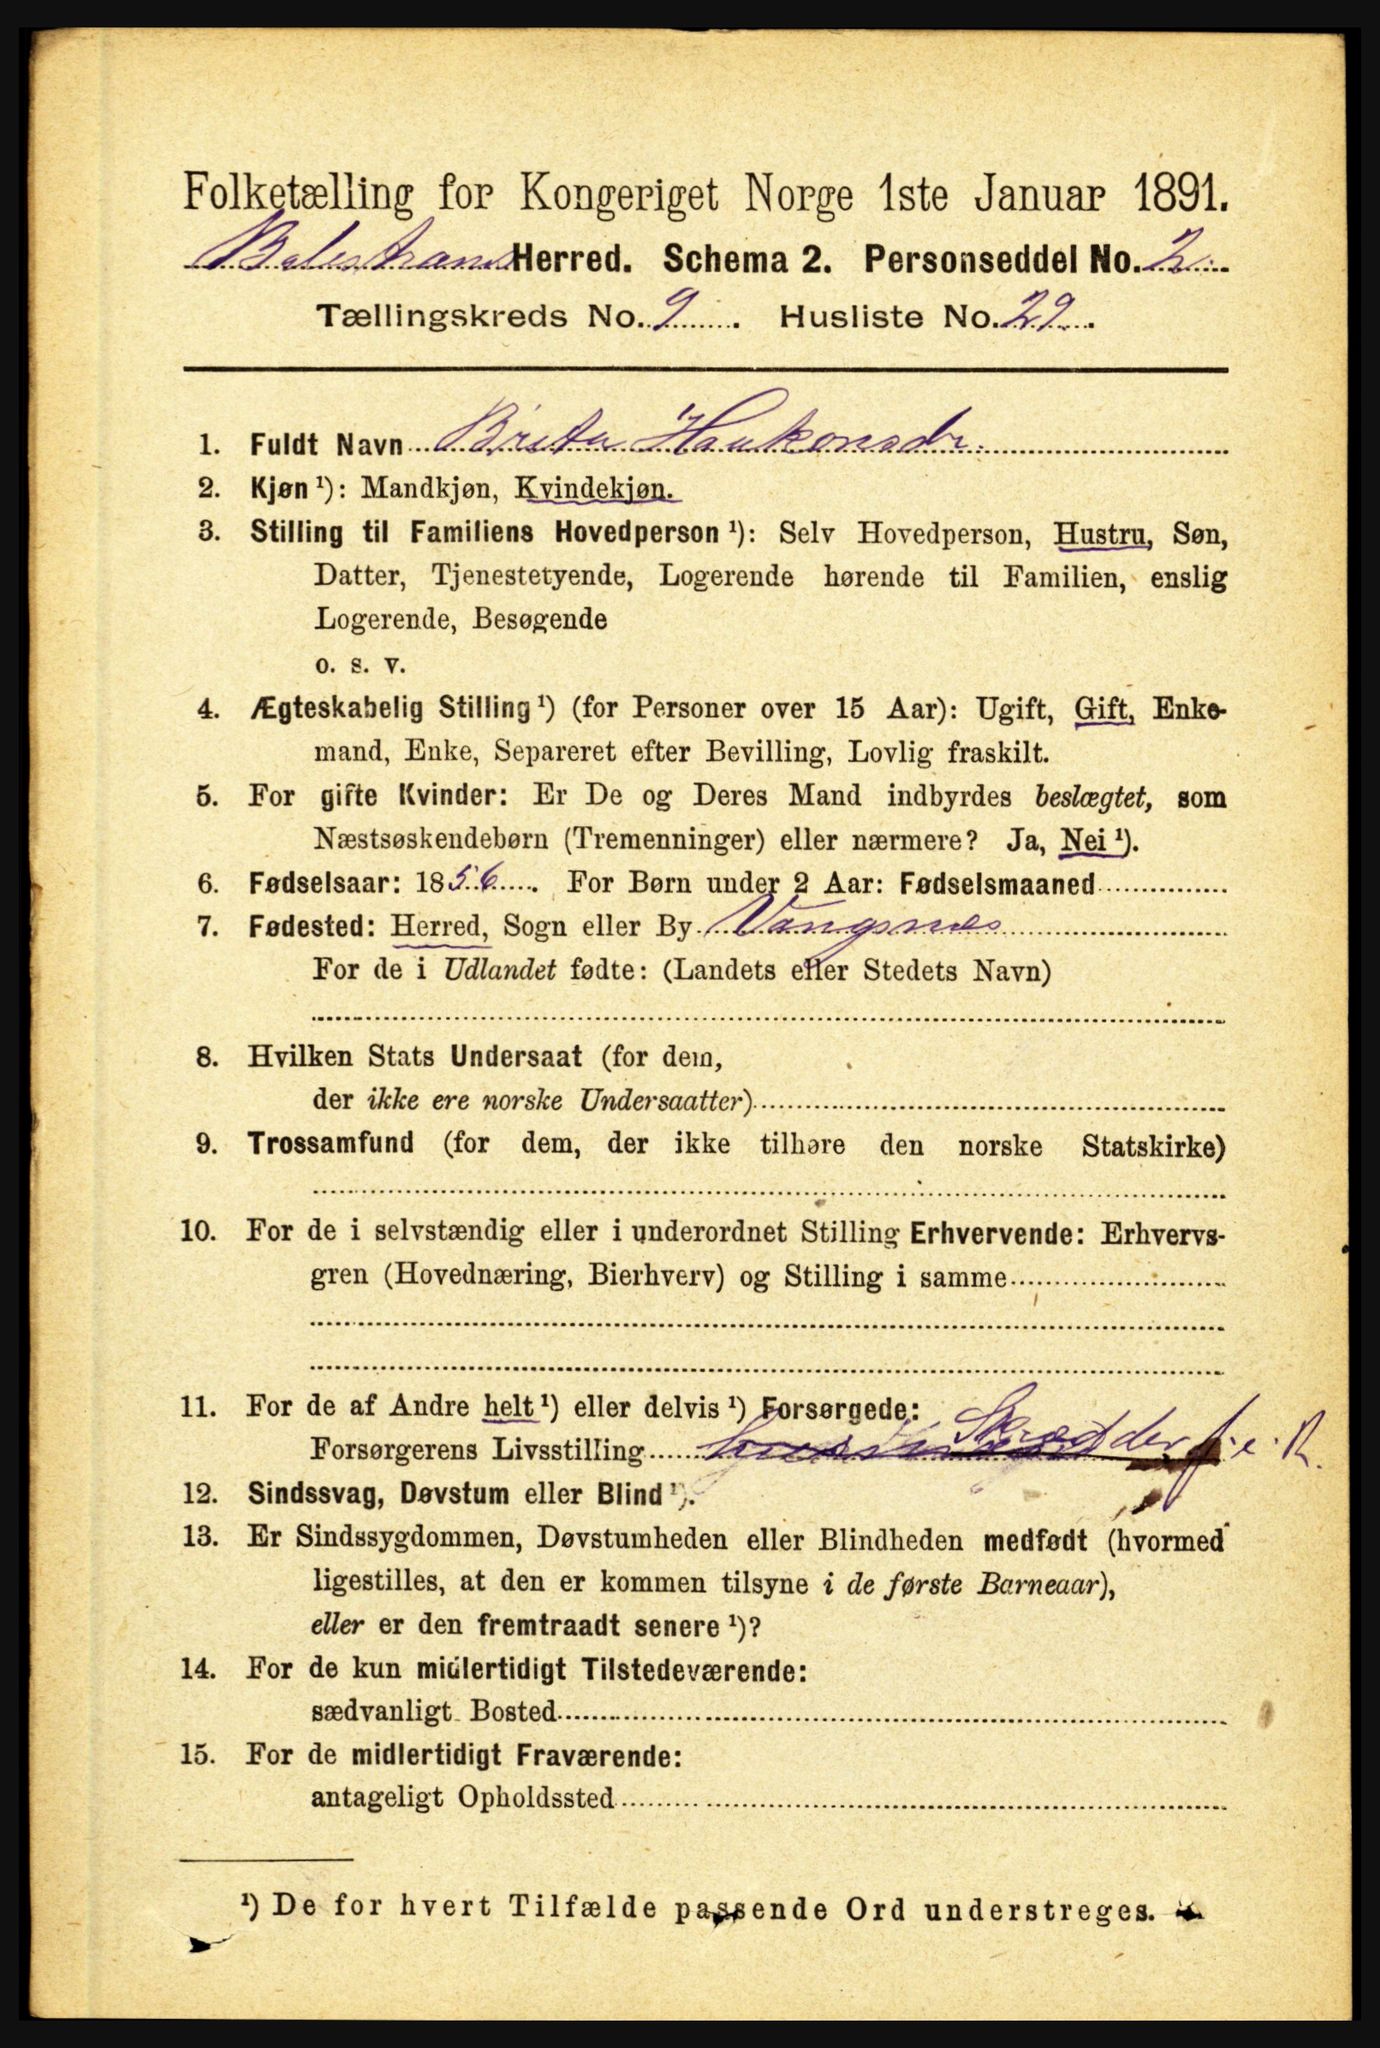 Folketælling for Kongeriget Norge 1ste Januar 1891.
Balestrand Herred. Schema 2. Personseddel No. 2
Tællingskreds No. 9. Husliste No. 29.
1. Fuldt Navn Brita Haakonsdr.
2. Kjøn ¹): Mandkjøn, Kvindekjøn.
3. Stilling til Familiens Hovedperson ¹): Selv Hovedperson, Hustru, Søn,
Datter, Tjenestetyende, Logerende hørende til Familien, enslig
Logerende, Besøgende
o. s. v.
4. Ægteskabelig Stilling ¹) (for Personer over 15 Aar): Ugift, Gift, Enke-
mand, Enke, Separeret efter Bevilling, Lovlig fraskilt.
5. For gifte Kvinder: Er De og Deres Mand indbyrdes beslægtet, som
Næstsøskendebørn (Tremenninger) eller nærmere? Ja, Nei ¹).
6. Fødselsaar: 1856. For Børn under 2 Aar: Fødselsmaaned
7. Fødested: Herred, Sogn eller By Vangsnes
For de i Udlandet fødte: (Landets eller Stedets Navn)
8. Hvilken Stats Undersaat (for dem,
der ikke ere norske Undersaatter)
9. Trossamfund (for dem, der ikke tilhøre den norske Statskirke)
10. For de i selvstændig eller i underordnet Stilling Erhvervende: Erhvervs-
gren (Hovednæring, Bierhverv) og Stilling i samme
11. For de af Andre helt ¹) eller delvis ¹) Forsørgede:
Forsørgerens Livsstilling Skrædder f. e. R.
12. Sindssvag, Døvstum eller Blind ¹).
13. Er Sindssygdommen, Døvstumheden eller Blindheden medfødt (hvormed
ligestilles, at den er kommen tilsyne i de første Barneaar),
eller er den fremtraadt senere ¹)?
14. For de kun midlertidigt Tilstedeværende:
sædvanligt Bosted
15. For de midlertidigt Fraværende:
antageligt Opholdssted
¹) De for hvert Tilfælde passende Ord understreges.